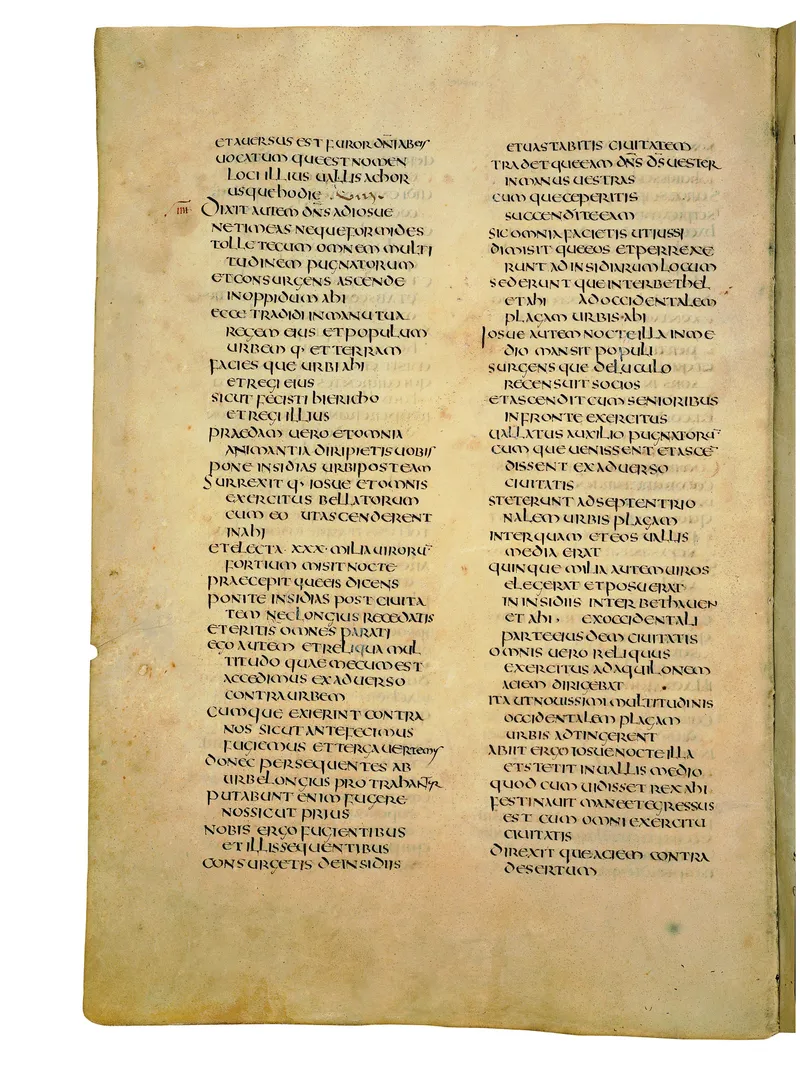 ETAVERSUS EST FUROR DN̄I AB EIS
UOCATUM QUE EST NOMEN
LOCI ILLIUS UALLIS ACHOR
USQUE hODIE
IIII DIXIT AUTEM DN̄S AD IOSUE
NE TIMEAS NEQUE FORMIDES
TOLLE TECUM OMNEM MULTI
TUDINEM PUGNATORUM
ET CONSURGENS ASCENDE
IN OPPIDUM AhI
ECCE TRADIDI IN MANU TUA
REGEM EIUS ET POPULUM
URBEM Q· ET TERRAM
FACIES QUE URBI AhI
ET REGI EIUS
SICUT FECISTI hIERICHO
ET REGI ILLIUS
PRAEDAM UERO ET OMNIA
ANIMANTIA DIRIPIETIS UOBIS
PONE INSIDIAS URBI POST EAM
SURREXIT Q· IOSUE ET OMNIS
EXERCITUS BELLATORUM
CUM EO UT ASCENDERENT
IN AhI
ET ELECTA ·XXX· MILIA UIRORU̅
FORTIUM MISIT NOCTE
PRAECEPIT QUE EIS DICENS
PONITE INSIDIAS POST CIUITA
TEM NEC LONGIUS RECEDATIS
ET ERITIS OMNES PARATI
EGO AUTEM ET RELIQUA MUL
TITUDO QUAE MECUM EST
ACCEDIMUS EX ADUERSO
CONTRA URBEM
CUMQUE EXIERINT CONTRA
NOS SICUT ANTE FECIMUS
FUGIEMUS ET TERGA UERTEMUS
DONEC PERSEQUENTES AB
URBE LONGIUS PROTRAhANTUR
PUTABUNT ENIM FUGERE
NOS SICUT PRIUS
NOBIS ERGO FUGIENTIBUS
ET ILLIS SEQUENTIBUS
CONSURGETIS DE INSIDIIS
ET UASTABITIS CIUITATEM
TRADET QUE EAM DN̄S D̄S UESTER
IN MANUS UESTRAS
CUM QUE CEPERITIS
SUCCENDITE EAM
SIC OMNIA FACIETIS UT IUSSI
DIMISIT QUE EOS ET PERREXE
RUNT AD INSIDIARUM LOCUM
SEDERUNT QUE INTER BEThEL
ET AhI AD OCCIDENTALEM
PLAGAM URBIS AhI
IOSUE AUTEM NOCTE ILLA IN ME
DIO MANSIT POPULI
SURGENS QUE DELUCULO
RECENSUIT SOCIOS
ET ASCENDIT CUM SENIORIBUS
IN FRONTE EXERCITUS
UALLATUS AUXILIO PUGNATORU̅
CUM QUE UENISSENT ET ASCE̅
DISSENT EX ADUERSO
CIUITATIS
STETERUNT AD SEPTENTRIO
NALEM URBIS PLAGAM
INTER QUAM ET EOS UALLIS
MEDIA ERAT
QUINQUE MILIA AUTEM UIROS
ELEGERAT ET POSUERAT
IN INSIDIIS INTER BEThAUEN
ET AhI · EX OCCIDENTALI
PARTE EIUSDEM CIUITATIS
OMNIS UERO RELIQUUS
EXERCITUS AD AQUILONEM
ACIEM DIRIGEBAT
ITA UT NOUISSIMI MULTITUDINIS
OCCIDENTALEM PLAGAM
URBIS ADTINGERENT
ABIIT ERGO IOSUE NOCTE ILLA
ET STETIT IN UALLIS MEDIO
QUOD CUM UIDISSET REX AhI
FESTINAUIT MANE ET EGRESSUS
EST CUM OMNI EXERCITU
CIUITATIS
DIREXIT QUE ACIEM CONTRA
DESERTUM